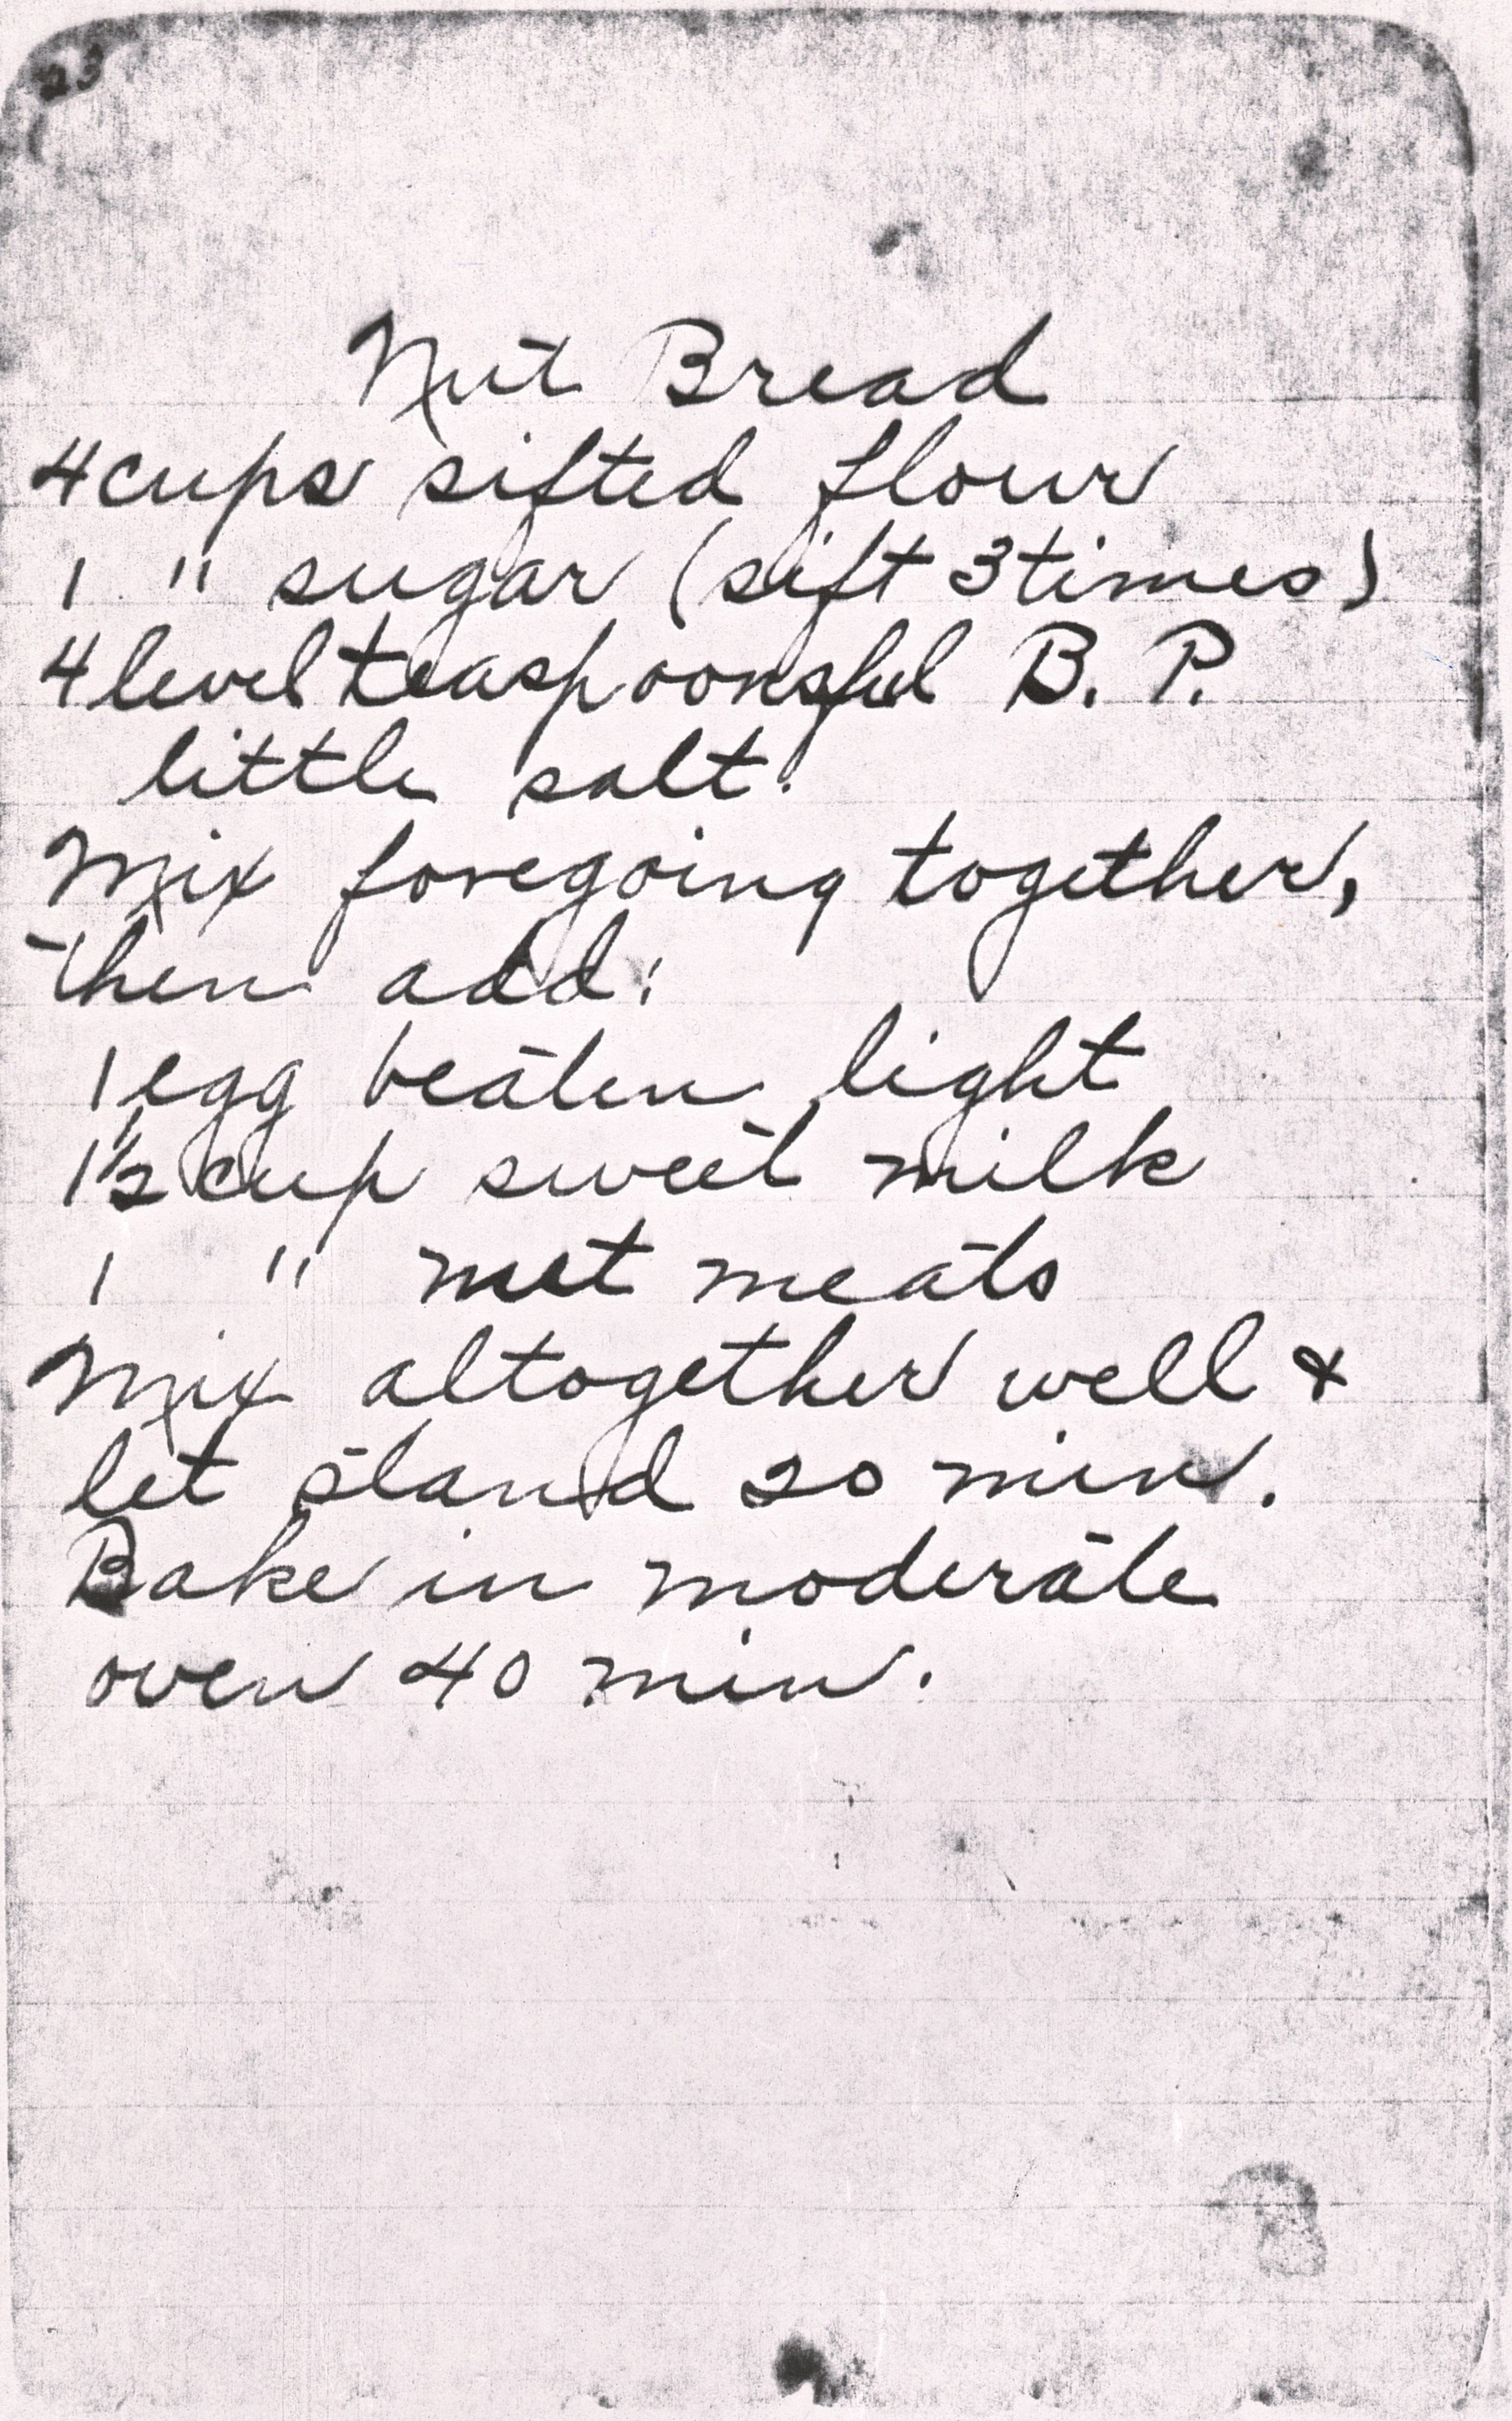 23
Nut Bread
4 cups sifted flour
1 " sugar (sift 3 times)
4 level teaspoonsful B. P.
little salt.
Mix foregoing together,
then add:
1 egg beaten light
1½ cup sweet milk
1 " nut meats
Mix altogether well &
let stand 20 min.
Bake in moderate
oven 40 min.